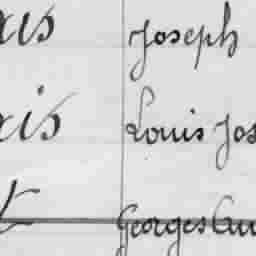 as Joseph
is Louis Jos
t Georges Au